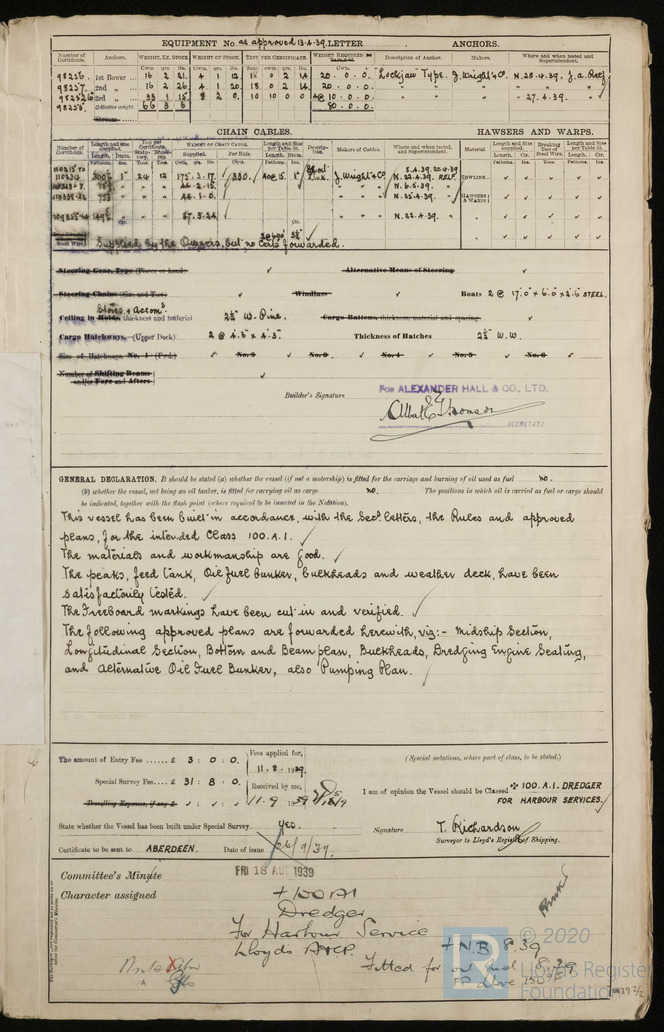 EQUIPMENT No. as approved 13.4.39. LETTER ANCHORS.
Number of Certificate. Anchors. WEIGHT, EX. STOCK WEIGHT OF STOCK. TEST PER CERTIFICATE. WEIGHT REQUIRED Description of Anchor. Makers. Where and when tested and Superintendent.
Cwts. qrs. lbs. Cwts. qrs. lbs. Tons. cwts. qrs. lbs. Cwts.
98256. 1st Bower 16 2 21 4 1 12 18 0 2 14 20 . 0 . 0 . Lockjaw Type. J. Wright & Co. N. 28.4.39. J.A.
98257. 2nd " 16 2 26 4 1 20 18 0 2 14 20 . 0 . 0 .
3rd " 33 1 15 8 2 0 10 10 0 0 40 . 0 . 0 . " 27.4.39. "
Collective weight. 66 3 6 80 . 0 . 0 .
CHAIN CABLES. HAWSERS AND WARPS.
Number of Certificate. Length and size supplied. Test per Certificate. WEIGHT OF CHAIN CABLE. Length and size per Table 31. Description. Makers of Cables. Where and when tested, and Superintendent. Material Length and size supplied. Breaking Test of Steel Wire. Length and size per Table 31.
Length. Diam. Supplied. Per Rule. Length. Diam. Length. Cir. Length. Cir.
300½ 1" 24 12 175.3.17 330. 1" J. Wright & Co. N. 22.4.39. TOWLINE
75 " " " 44.2.15 N. 6.5.39. HAWSERS & WARPS
75 " " " 44.1.0. " " N. 25.4.39. "
149½ " " " 87.3.24 " " " N. 22.4.39. "
Supplied by the Owners, but no Certs forwarded.
Steering Gear, Type (Power or hand) Alternative Means of Steering
Steering Chains (Size and Test) Windlass Boats 2 @ 17'.0" x 6'.0" x 2'.6" STEEL.
Stores & Accomn.
Ceiling in Holds, thickness and material 2½" W. Pine. Cargo Battens, thickness, material and spacing.
Cargo Hatchways.-(Upper Deck) 2 @ 4'.6" x 4'.3" Thickness of Hatches 2½" W.W.
Size of Hatchways No. 1 (Fwd.) No. 2 No. 3 No. 4 No. 5 No. 6
Number of Shifting Beams
and/or Fore and Afters
Builder's Signature For ALEXANDER HALL & CO., LTD.
Albert E. Thomson
SECRETARY.
GENERAL DECLARATION. It should be stated (a) whether the vessel (if not a motorship) is fitted for the carriage and burning of oil used as fuel no.
(b) whether the vessel, not being an oil tanker, is fitted for carrying oil as cargo no. The positions in which oil is carried as fuel or cargo should
be indicated, together with the flash point (where required to be inserted in the Notation).
This vessel has been built in accordance, with the Secy's letters, the Rules and approved
plans, for the intended Class 100.A.1.
The materials and workmanship are good.
The peaks, feed tank, Oil Fuel Bunker, bulkheads and weather deck, have been
satisfactorily tested.
The Freeboard markings have been cut in and verified.
The following approved plans are forwarded herewith, viz:- Midship Section,
Longitudinal Section, Bottom and Beam plan, Bulkheads, Dredging Engine Seating,
and Alternative Oil Fuel Bunker, also Pumping Plan.
The amount of Entry Fee ...... £ 3 : 0 : 0. Fees applied for, 11.8.1939. (Special notations, where part of class, to be stated.)
Special Survey Fee .... £ 31 : 8 : 0. Received by me, 11.9.1939
Travelling Expenses, if any £
I am of opinion the Vessel should be Classed ✠ 100.A.1. DREDGER
FOR HARBOUR SERVICES.
State whether the Vessel has been built under Special Survey Yes. Signature T. Richardson
Surveyor to Lloyd's Register of Shipping.
Certificate to be sent to ABERDEEN. Date of issue 26/9/39.
Committee's Minute FRI 18 AUG 1939
Character assigned +100A1
Dredger
For Harbour Service
Lloyds A&CP. + N.B 8.39
Fitted for oil fuel 8.39
FP above 150°F
© 2020
Lloyd's Register
Foundation